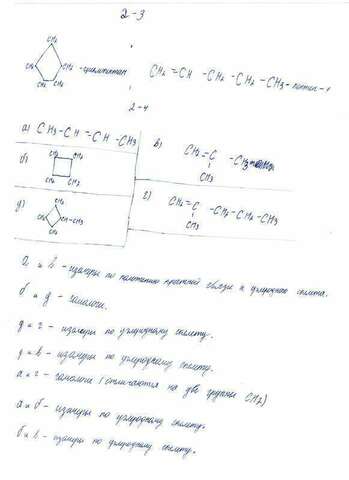 2-3
CH₂
CH₂ CH₂ - циклопентан CH₂ = CH - CH₂ - CH₂ - CH₃ - пентен-1
CH₂ CH₂
2-4
а) CH₃-CH = CH - CH₃
в) CH₂ = C - CH₃
CH₃
б) CH₂ CH₂
CH₂ CH₂
г) CH₂ = C - CH₂ - CH₂ - CH₃
CH₃
д) CH₂
CH₂ CH-CH₃
CH₂
а и в - изомеры по положению кратной связи и углеродного скелета.
б и д - гомологи.
д и г - изомеры по углеродному скелету.
д и в - изомеры по углеродному скелету.
а и г - гомологи (отличаются на две группы CH₂)
а и б - изомеры по углеродному скелету.
б и в - изомеры по углеродному скелету.